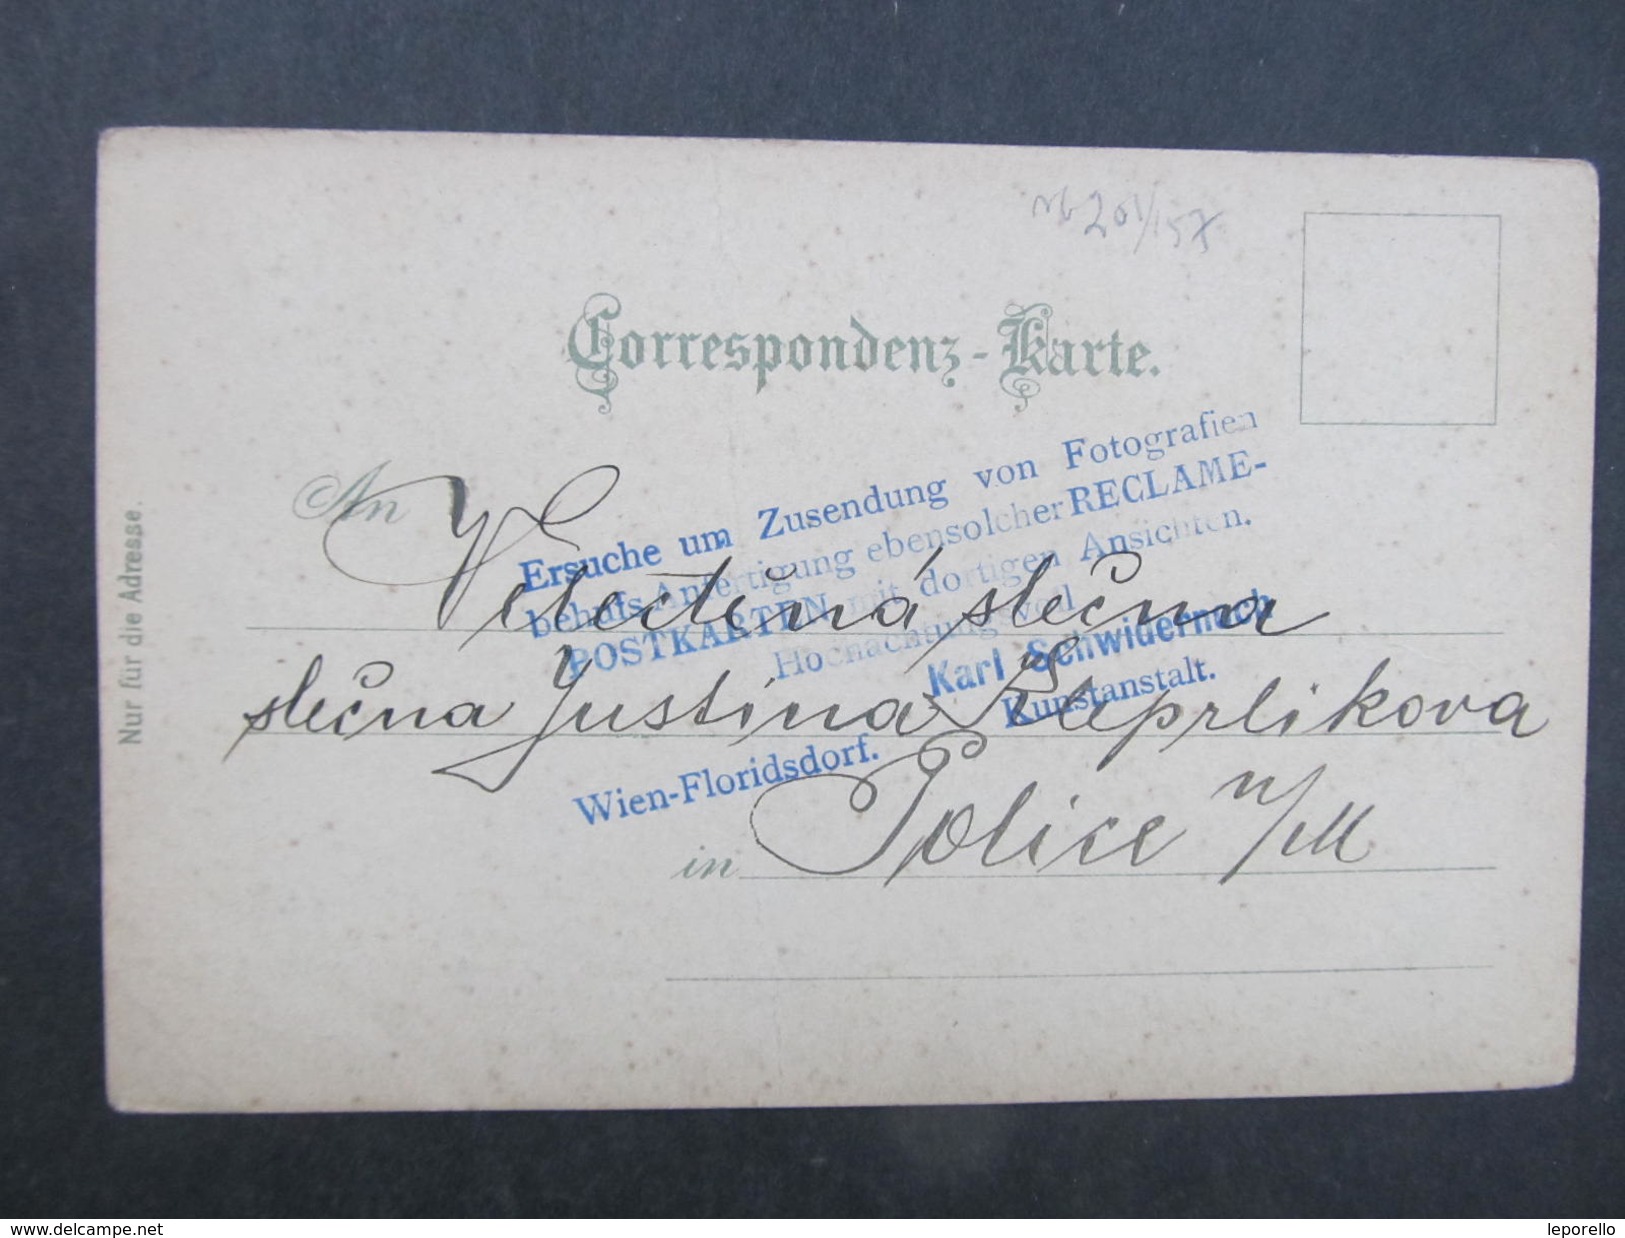 Correspondenz-Karte.
Nur für die Adresse.
Ersuche um Zusendung von Fotografien
behufs Anfertigung ebensolcher RECLAME-
POSTKARTEN mit dortigen Ansichten.
Hochachtungsvoll
Karl Schwidernoch
Kunstanstalt.
Wien-Floridsdorf.
An Velectěná slečna
slečna Justina Keprlikova
in Police n/M
www.delcampe.net
leporello